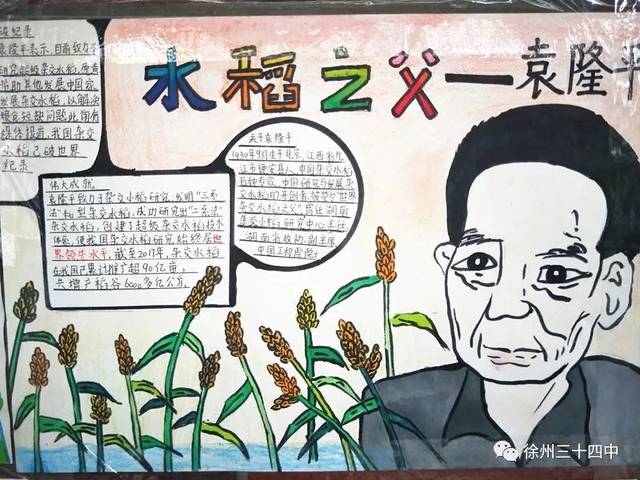 水稻之父—袁隆平
破纪录
袁隆平表示,目前致力于
研究超级杂交水稻,愿意
帮助其他发展中国家
发展杂交水稻,以解决
粮食短缺问题。此前有
媒体报道,我国杂交
水稻已破世界
纪录
伟大成就
袁隆平致力于杂交水稻研究,发明"三系
法"籼型杂交水稻,成功研究出"二系法"
杂交水稻,创建了超级杂交稻技术
体系,使我国杂交水稻研究始终居世
界领先水平,截至2017年,杂交水稻
在我国已累计推广超90亿亩,
共增产稻谷6000多亿公斤。
关于袁隆平
1930年9月生于北京,江西省九
江市德安县人,中国杂交水稻
育种专家,中国研究与发展杂
交水稻的开创者,被誉为"世界
杂交水稻之父",曾任湖南
杂交水稻研究中心主任
湖南省政协副主席
中国工程院院士
徐州三十四中